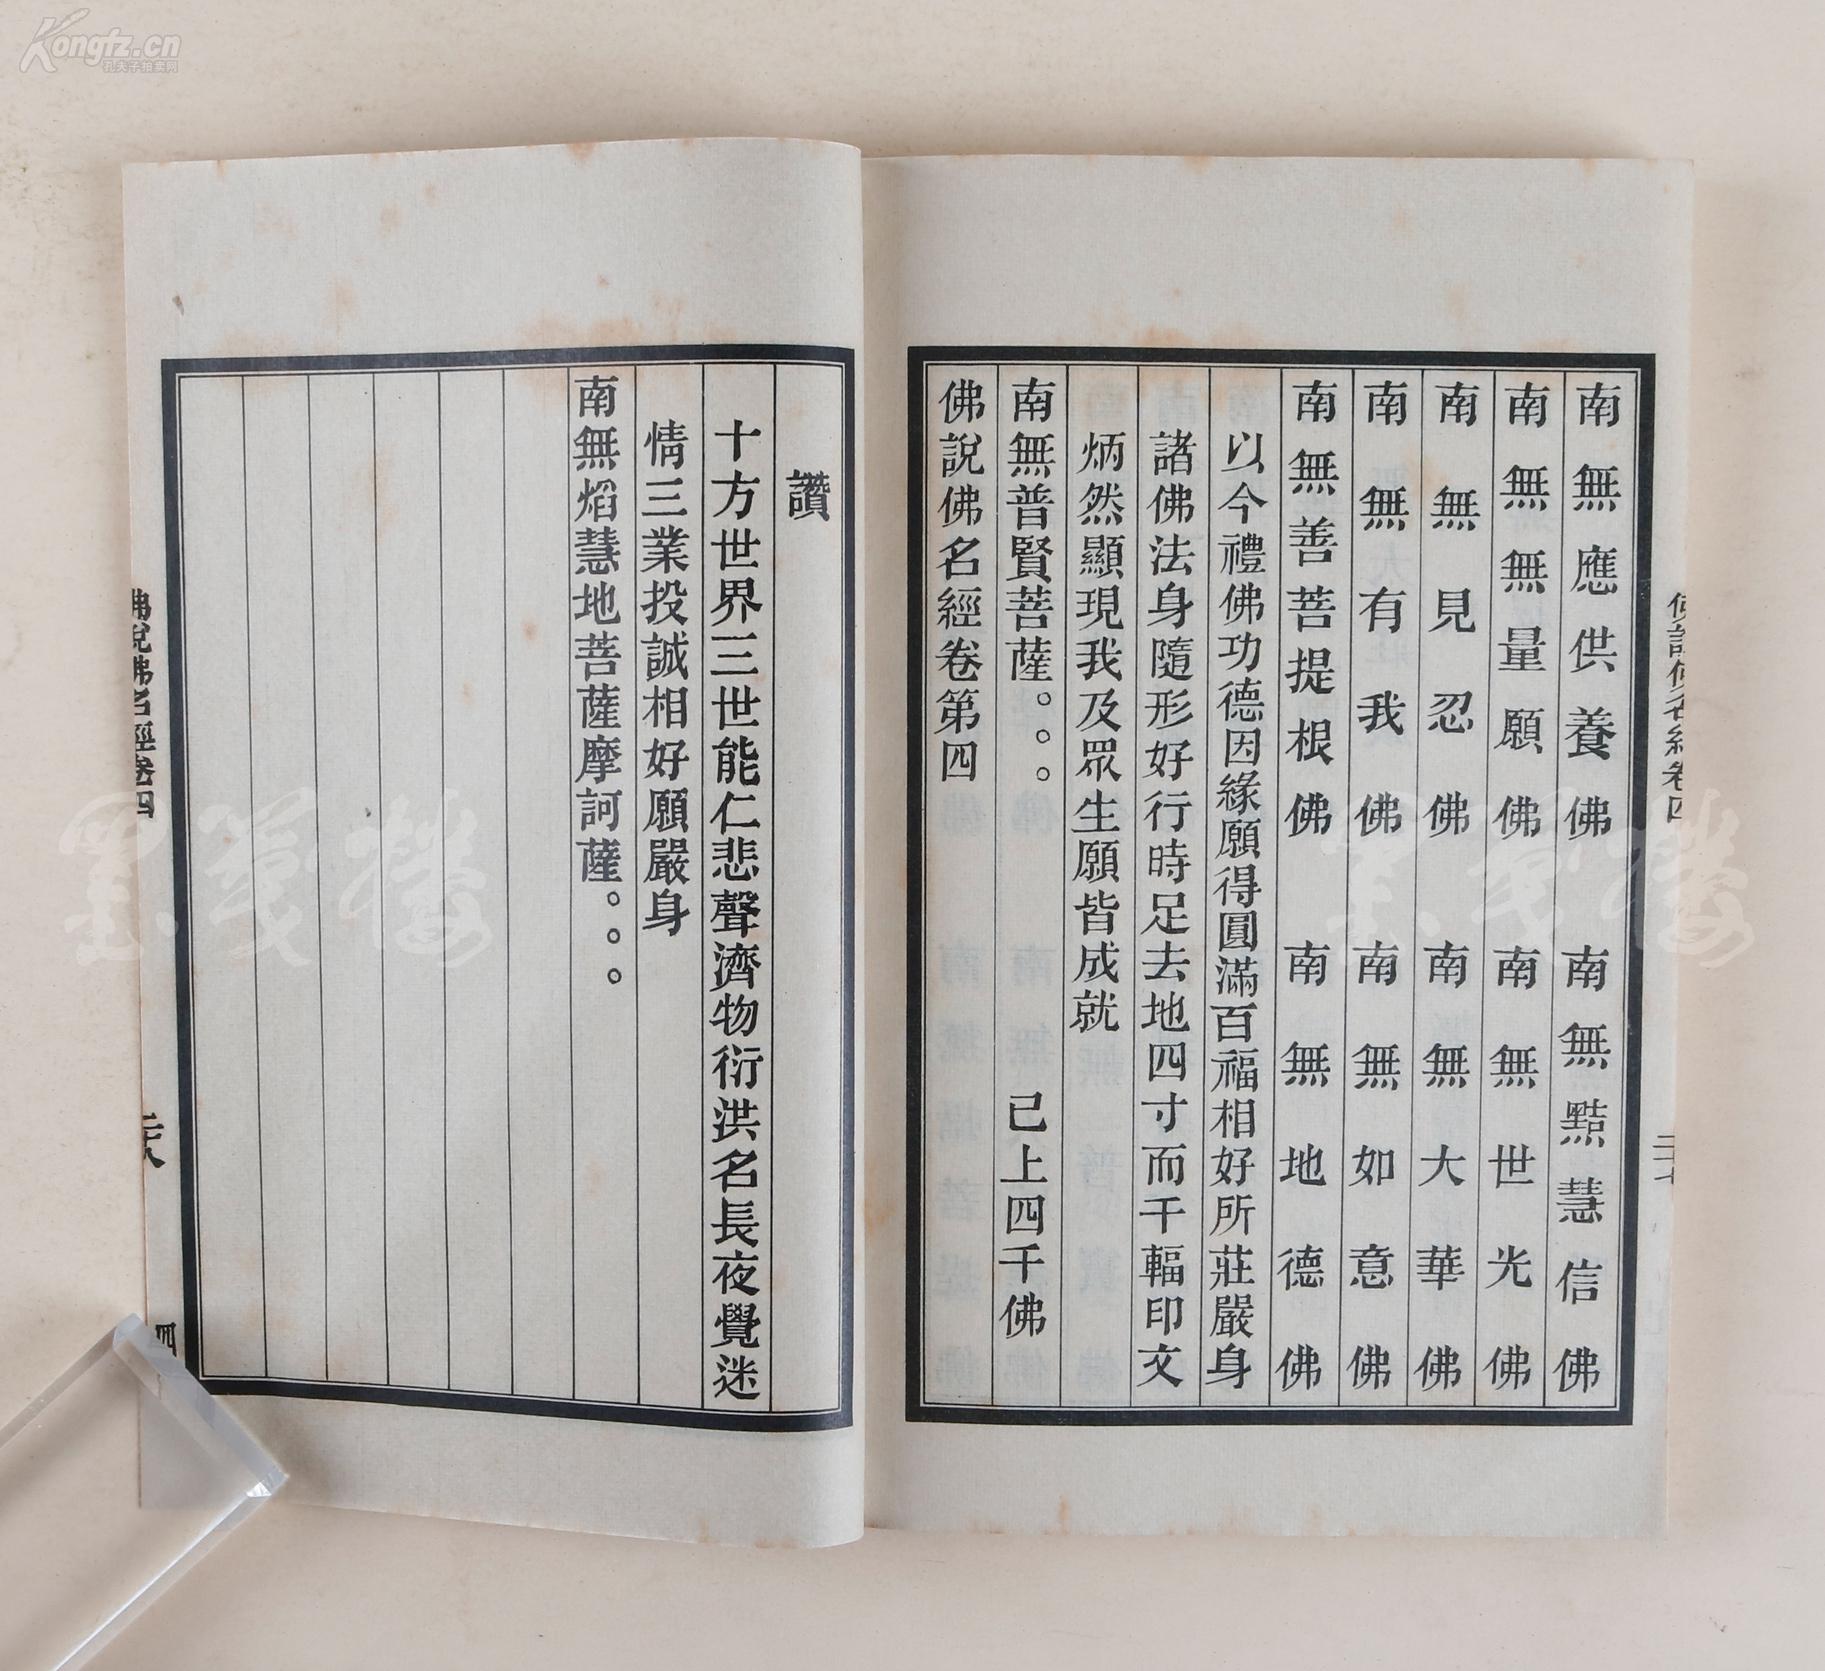 南無應供養佛　南無點慧信佛
南無無量願佛　南無世光佛
南無見忍佛　南無大華佛
南無有我佛　南無如意佛
南無善菩提根佛　南無地德佛
以今禮佛功德因緣願得圓滿百福相好所莊嚴身
諸佛法身隨形好行時足去地四寸而千輻印文
炳然顯現我及眾生願皆成就
南無普賢菩薩。。。　已上四千佛
佛說佛名經卷第四
讚
十方世界三世能仁悲聲濟物衍洪名長夜覺迷
情三業投誠相好願嚴身
南無焰慧地菩薩摩訶薩。。。
佛說佛名經卷四
二十八
四
佛說佛名經卷四
二十七
Kongfz.cn
孔夫子拍卖网